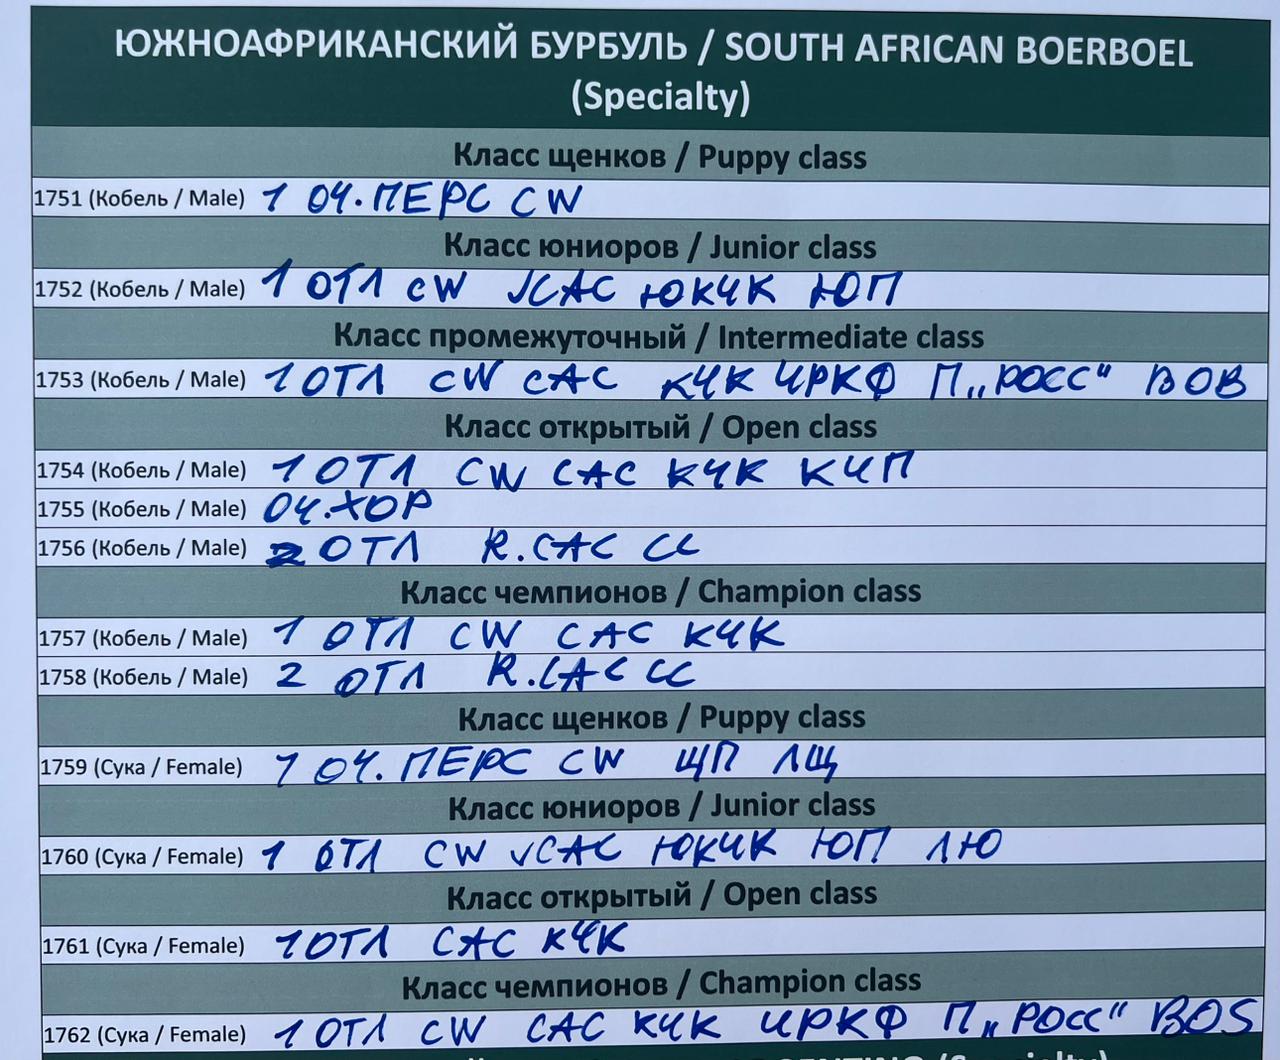 ЮЖНОАФРИКАНСКИЙ БУРБУЛЬ / SOUTH AFRICAN BOERBOEL
(Specialty)
Класс щенков / Puppy class
1751 (Кобель / Male) 1 ОЧ.ПЕРС CW
Класс юниоров / Junior class
1752 (Кобель / Male) 1 ОТЛ CW JCAC ЮКЧК ЮП
Класс промежуточный / Intermediate class
1753 (Кобель / Male) 1 ОТЛ CW CAC КЧК ЧРКФ П„РОСС“ BOB
Класс открытый / Open class
1754 (Кобель / Male) 1 ОТЛ CW CAC КЧК КЧП
1755 (Кобель / Male) ОЧ.ХОР
1756 (Кобель / Male) 2 ОТЛ R.CAC CC
Класс чемпионов / Champion class
1757 (Кобель / Male) 1 ОТЛ CW CAC КЧК
1758 (Кобель / Male) 2 ОТЛ R.CAC CC
Класс щенков / Puppy class
1759 (Сука / Female) 1 ОЧ.ПЕРС CW ЩП ЛЩ
Класс юниоров / Junior class
1760 (Сука / Female) 1 ОТЛ CW JCAC ЮКЧК ЮП ЛЮ
Класс открытый / Open class
1761 (Сука / Female) 1 ОТЛ CAC КЧК
Класс чемпионов / Champion class
1762 (Сука / Female) 1 ОТЛ CW CAC КЧК ЧРКФ П„РОСС“ BOS
(Specialty)